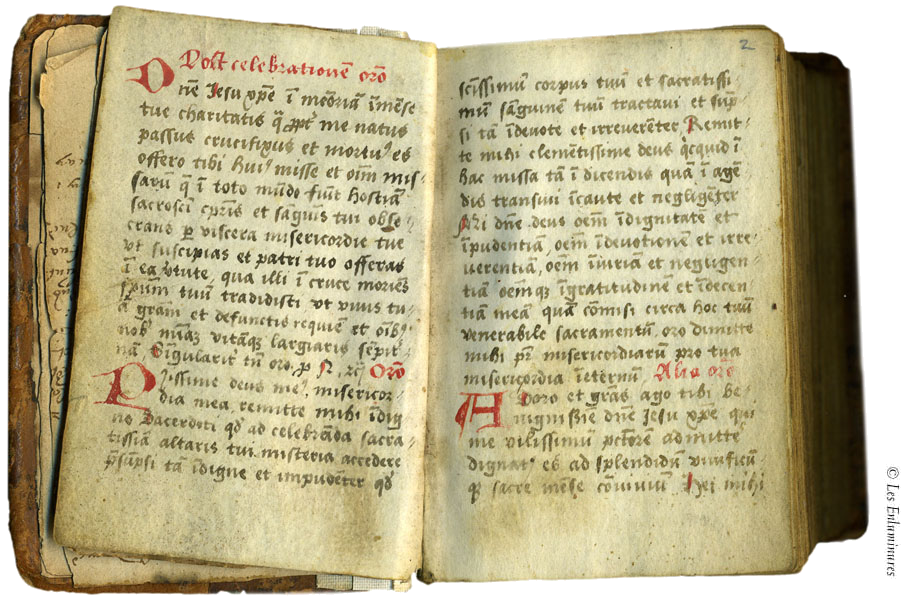 Post celebrationē orō
Dne Jesu xpe ī meōriā īmēse
tue charitatis q̄ ppt' me natus
passus crucifixus et mortuꝰ es
offero tibi huiꝰ misse et oīm mis-
sarū q̄ ī toto mūdo fiūt hostiā
sacroscī cprīs et sāguīs tui obse-
crans p viscera misericordie tue
ut suscipias et patri tuo offeras
ī ea v'tute, qua illi ī cruce moriēs
spūm tuū tradidisti ut vivis tu-
ā gram et defunctis requiē et oībꝰ
nob' nūcq vitāq largiaris sēpit'-
nā, Singularit' tn̄ oro, p N, Orō
Piissime deus meꝰ, misericor-
dia mea, remitte mihi īdig-
no Sacerdoti qd' ad celebrāda sacra-
tissiā altaris tui misteria accedere
p̄sūpsi tā īdigne et impudēter qd'
2
sctīssimū corpus tuū et sacratissi
mū sāguinē tuū tractavi et sūp-
si tā īdevote et irreverēter Remit-
te mihi clemētissime deus q̄cquid ī
hac missa tā ī dicendis quā ī agē-
dis transivi īcaute et negligēter
dne deus oēm īdignitatē et
īpudentiā, oēm īdevotionē et irre-
verentiā, oēm īiuriā et negligen-
tiā oēmqꝫ īgratitudinē et īdecen
tiā meā quā cōmisi circa hoc tuū
venerabile sacramentū. oro dimitte
mihi pr̄ misericordiarū pro tua
misericordia īeternū Alia orō
Adoro et grās ago tibi be-
nignissīe dn̄e Jesu xpe qui
me vilissimū pctōrē admitte'
dignatꝰ es ad splendidū vivificū-
qꝫ sacre mēse cōviviū Hei mihi
© Les Enluminures